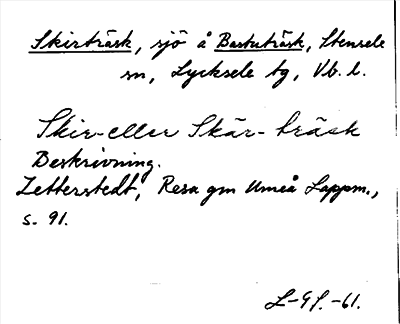 Skirträsk, sjö å Bastuträsk, Stensele
sn, Lycksele tg, Vb. l.
Skir- eller Skär-träsk
Beskrivning.
Zetterstedt, Resa gm Umeå Lappm.,
s. 91.
L-gf.-61.